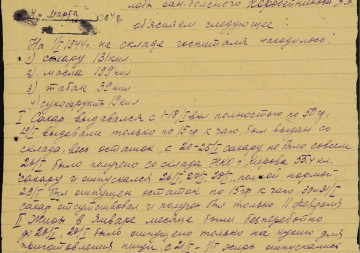 4 Марта
объясняем следующее:
На 1/I 1944г. на складе госпиталя находилось:
1) сахару 131 кил
2) масла 199 кил
3) табак 39 кил
4) сухофрукт 19 кил.
I Сахар выдавался с 1-18/I был полностью по 50 гр,
19/I выдавали только по 15 гр к чаю, был выдан со
склада, весь остаток, с 20-25/I сахару не было совсем
было получено со склада 55,4 кл.
сахару и отпускался 26/I 27/I 28/I полной нормой
29/I был отпущен остаток по 15 гр к чаю, 30 и 31/I
сахар отсутствовал и получен был только II февраля
II Жиры в Январе месяце были бесперебойно
до 20/I было отпущено только на кухню для
приготовления пищи, с 21/I жиры отпускались